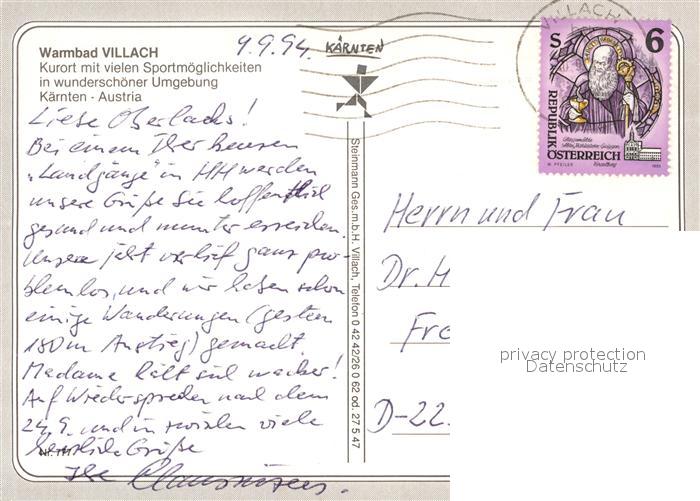 Warmbad VILLACH
Kurort mit vielen Sportmöglichkeiten
in wunderschöner Umgebung
Kärnten - Austria
9.9.94.
KÄRNTEN
VILLACH
S 6
REPUBLIK
ÖSTERREICH
Liebe Oberlachs!
Bei einem Ihrer neuen
"Landgänge" in HH werden
unsere Grüße Sie hoffentlich
gesund und munter erreichen.
Unsere verlief ganz pro-
blemlos, und wir haben schon
einige Wanderungen (gestern
180m Anstieg) gemacht.
Madame hält sich wacker!
Auf Wiedersprechen nach dem
24.9. und inzwischen viele
herzliche Grüße
Ihre
Steinmann Ges.m.b.H. Villach, Telefon 0 42 42/26 0 62 od. 27 5 47
Herrn und Frau
Dr. H
Fre
D-22.
privacy protection
Datenschutz